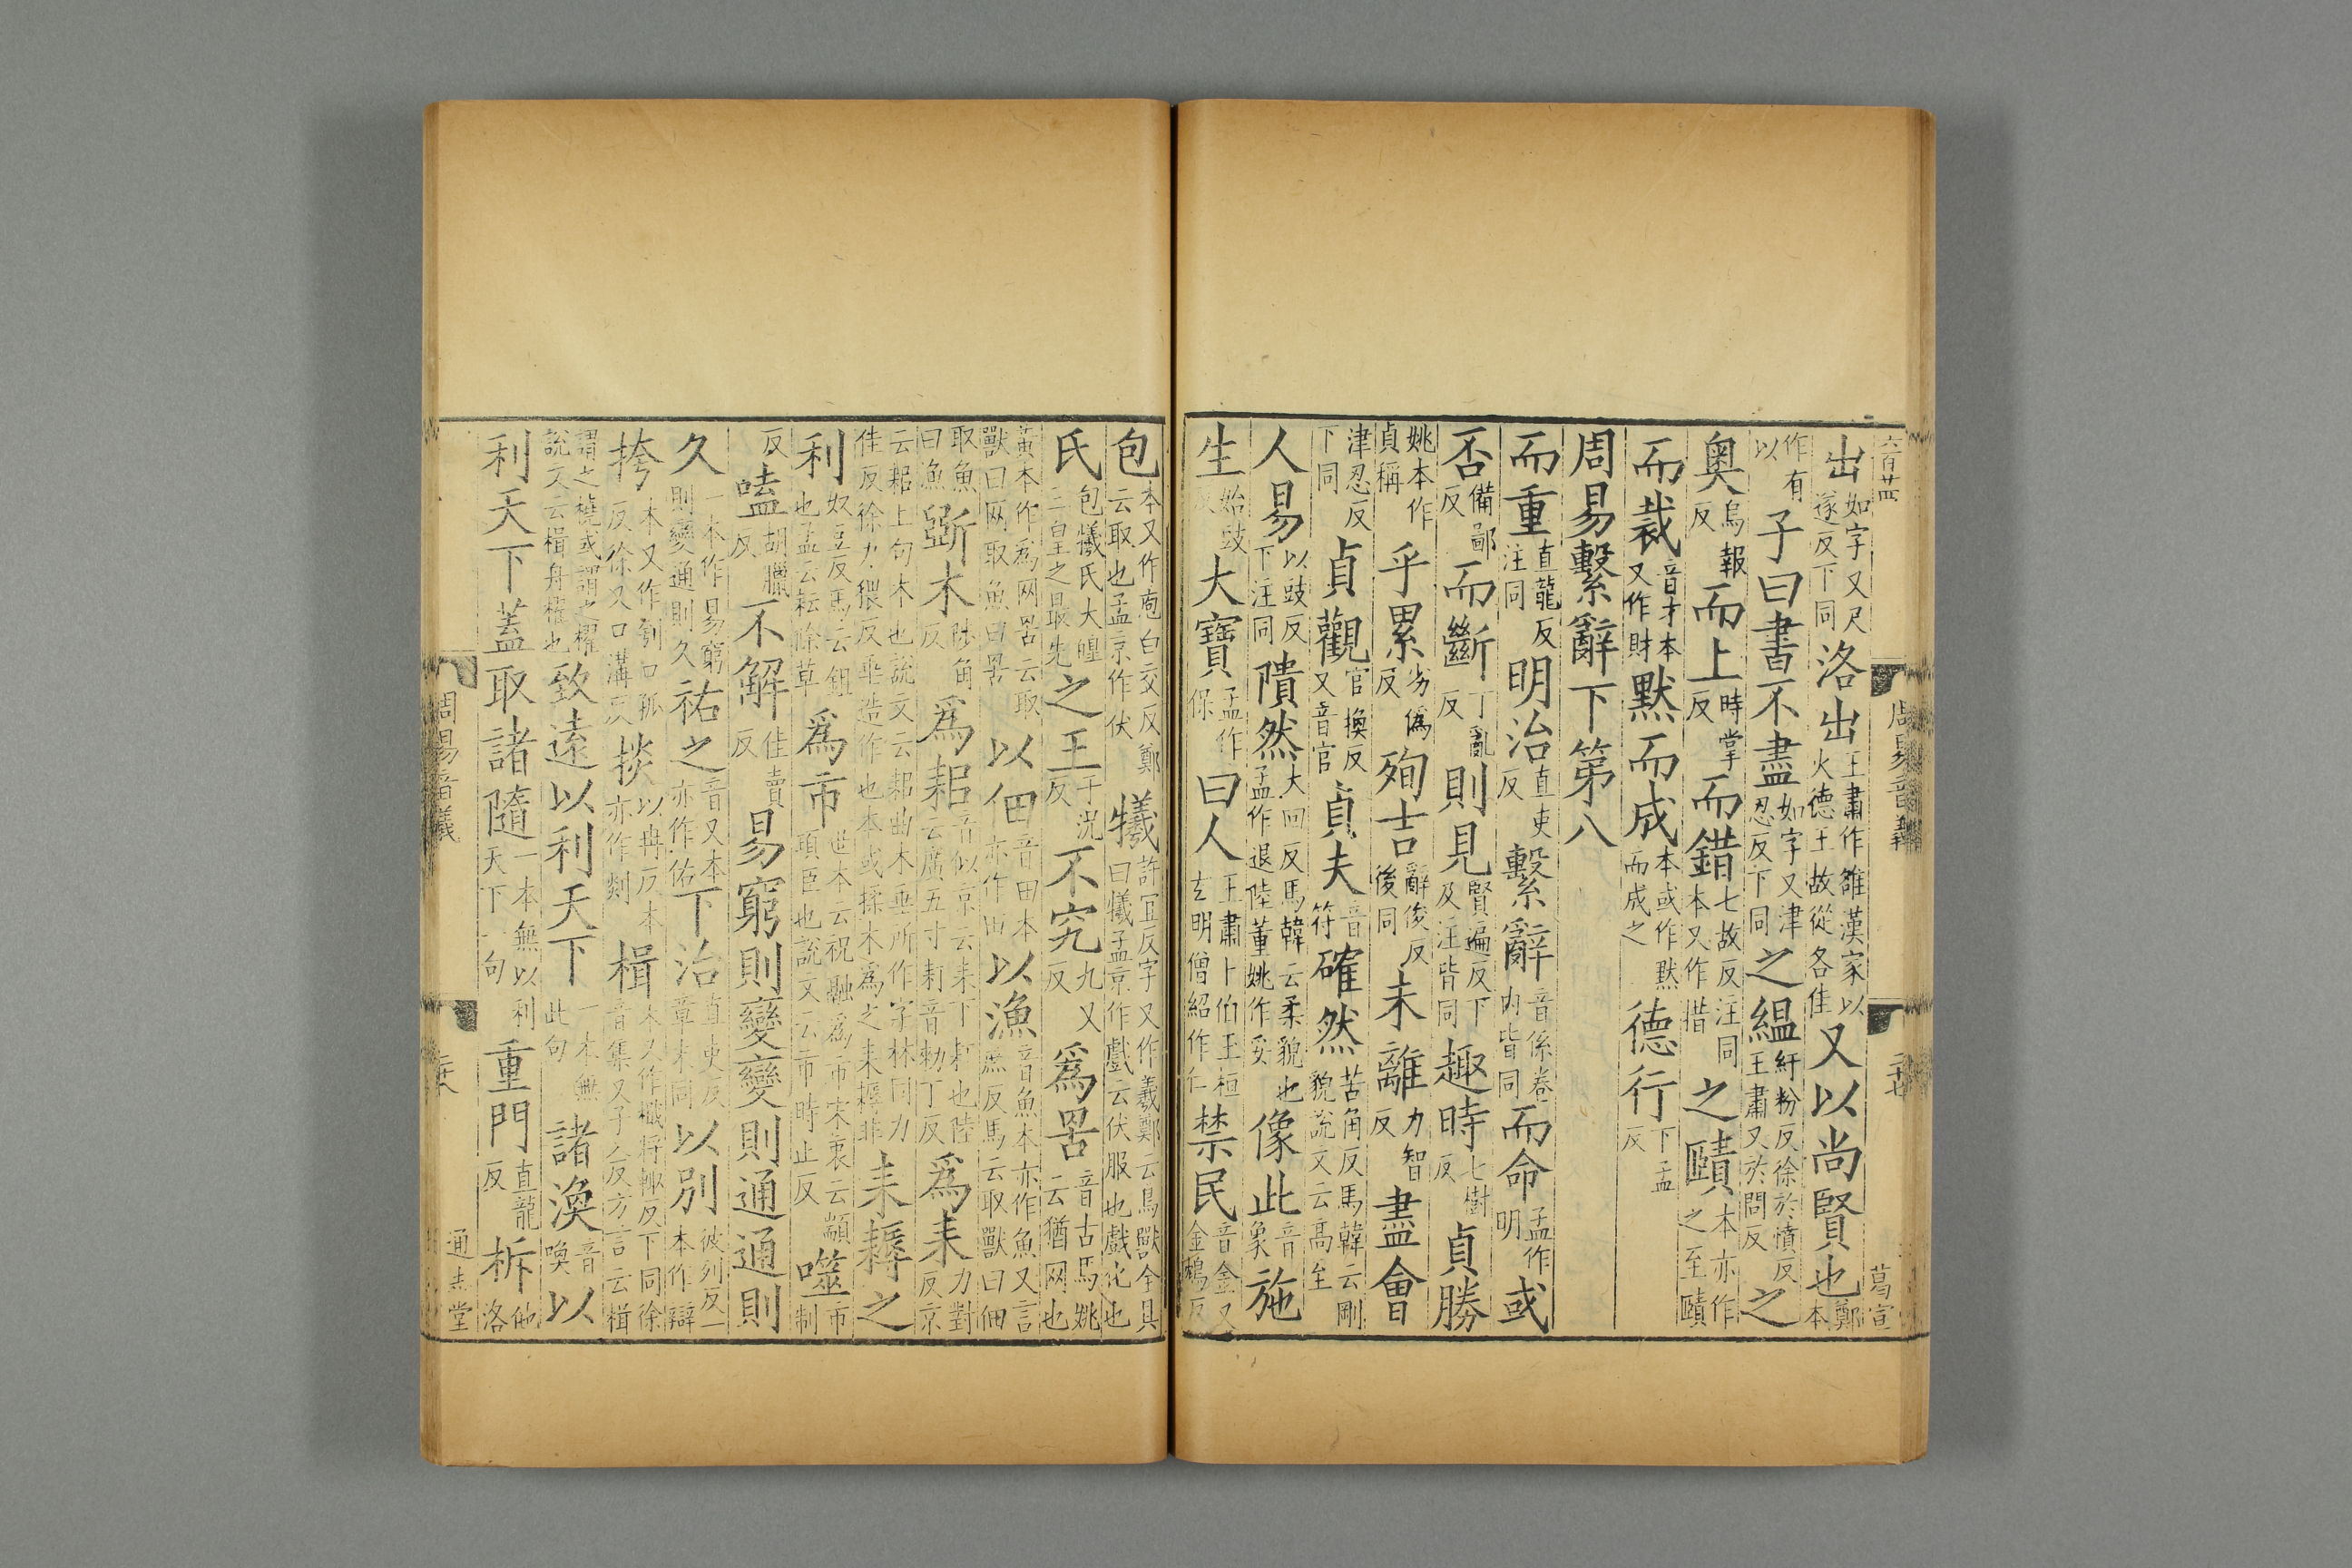 六百廿四 周易音義 二十七 葛宣
出如字又尺遂反下同洛出王肅作雒漢家以火德王故從各隹又以尚賢也鄭本
作有以子曰書不盡如字又津忍反下同之縕紆粉反徐於憤反王肅又於問反之
奧烏報反而上時掌反而錯七故反注同本又作措之賾本亦作之至賾
而裁音才本又作財默而成本或作默而成之德行下孟反
周易繫辭下第八
而重直龍反注同明治直吏反繫辭音係卷内皆同而命孟作明或
否備鄙反而斷丁亂反則見賢遍反下及注皆同趣時七樹反貞勝
姚本作貞稱乎累劣偽反殉吉辭俊反後同未離力智反盡會
津忍反下同貞觀官換反又音官貞夫音符確然苦角反馬韓云剛貌說文云高至
人易以豉反下注同隤然大回反馬韓云柔貌也孟作退陸董姚作妥像此音象施
生始豉反大寶孟作保曰人王肅卞伯玉桓玄明僧紹作仁禁民音金又金鴆反
包本又作庖白交反鄭云取也孟京作伏犧許宜反字又作羲鄭云鳥獸全具曰犧孟京作戲云伏服也戲化也
氏包犧氏大皥三皇之最先之王于況反不究九又反爲罟音古馬姚云猶网也
黃本作爲网罟云取獸曰网取魚曰罟以佃音田本亦作田以漁音魚本亦作魚又言庶反馬云取獸曰佃
取魚曰漁斲木陟角反爲耜音似京云耒下耓也陸云廣五寸耓音勑丁反爲耒力對反京
云耜上句木也說文云耜曲木垂所作字林同力隹反徐力猥反垂造作也本或揉木爲之耒耨非耒耨之
利奴豆反馬云鉏也孟云耘除草爲市世本云祝融爲市宋衷云顓頊臣也說文云市時止反噬市制
反嗑胡臘反不解佳賣反易窮則變變則通通則
久一本作易窮則變通則久祐之音又本亦作佑下治直吏反章末同以別彼列反一本作辯
挎本又作刳口孤反徐又口溝反掞以冉反本亦作剡楫本又作檝將輒反下同徐音集又子入反方言云楫
謂之橈或謂之櫂說文云楫舟櫂也致遠以利天下一本無此句諸渙音喚以
利天下蓋取諸隨一本無以利天下一句重門直龍反柝他洛
周易音義 二十八 通志堂